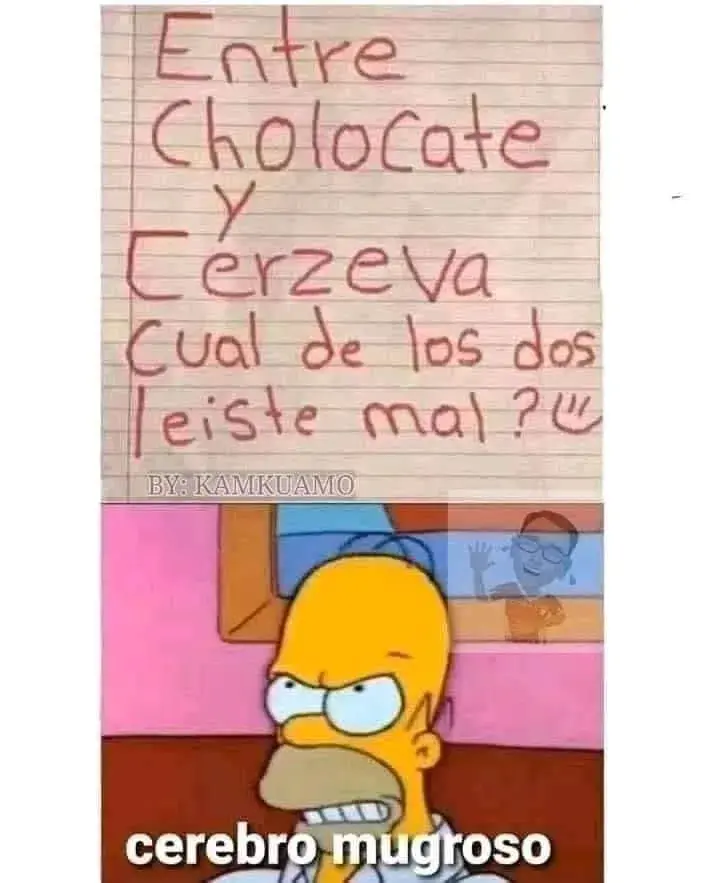 Entre
Cholocate
y
Cerzeva
Cual de los dos
leiste mal?
BY: KAMKUAMO
cerebro mugroso